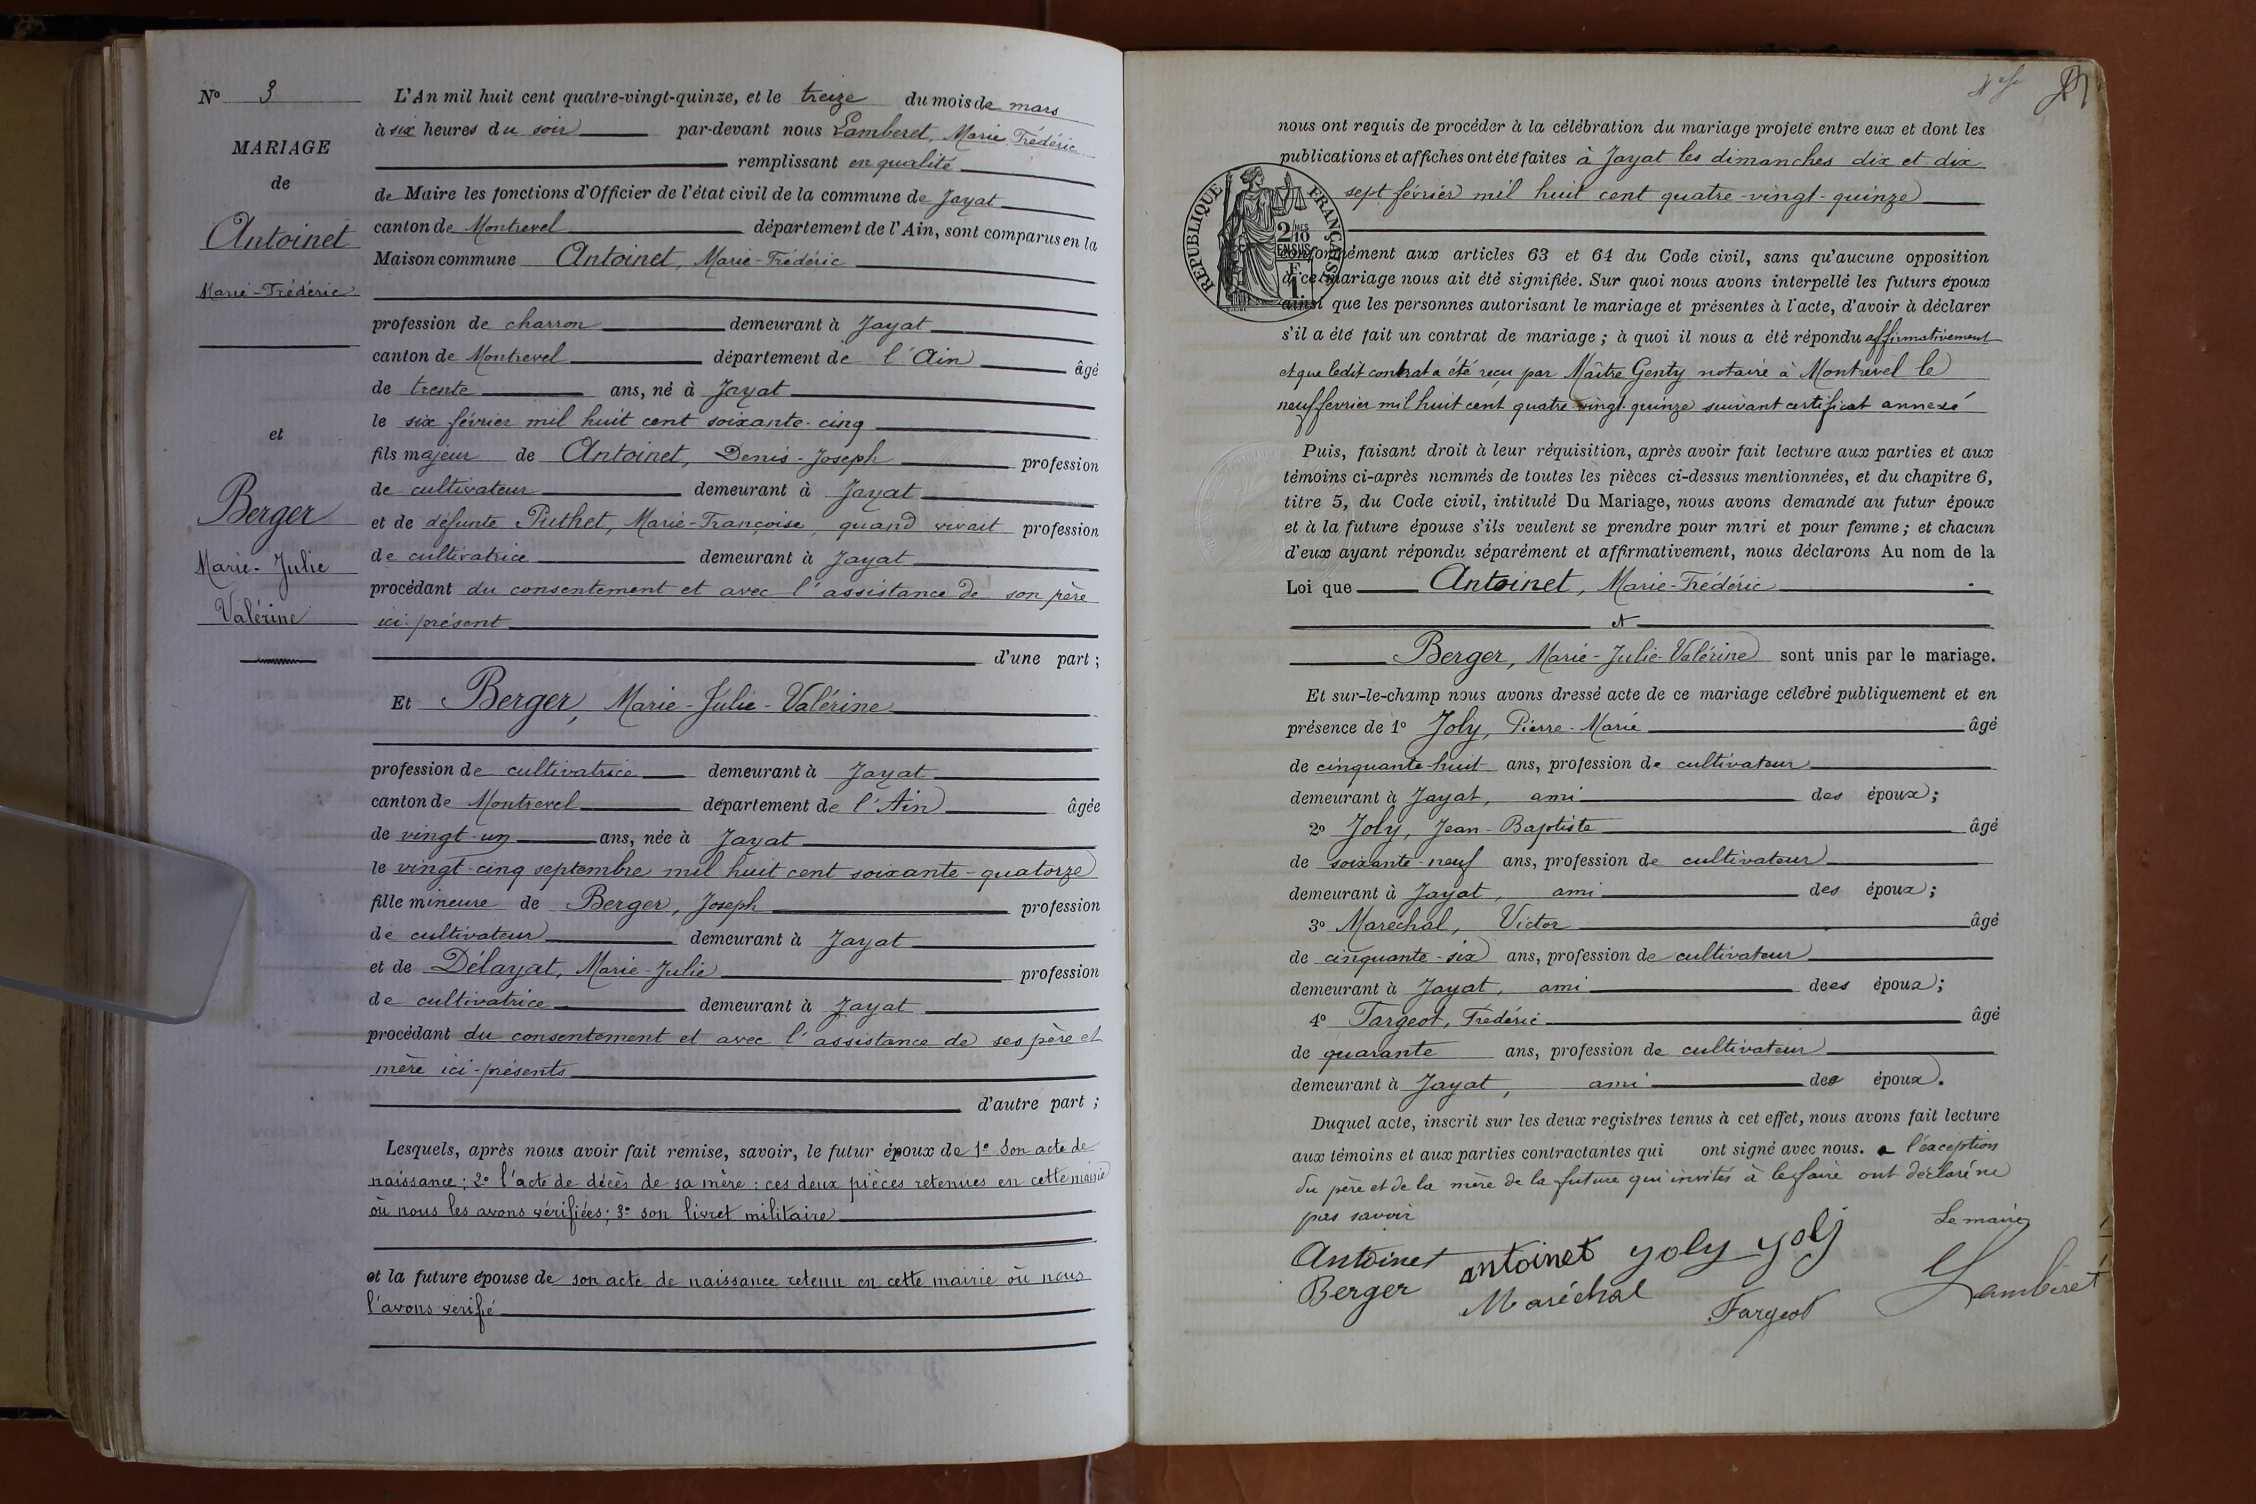 N° 3
MARIAGE
de
Antoinet
Marie-Frédéric
et
Berger
Marie-Julie
Valérine
L'An mil huit cent quatre-vingt-quinze, et le treize du mois de mars
à six heures du soir par-devant nous Lamberet, Marie Frédéric
remplissant en qualité
de Maire les fonctions d'Officier de l'état civil de la commune de Jayat
canton de Montrevel département de l'Ain, sont comparus en la
Maison commune Antoinet, Marie-Frédéric
profession de charron demeurant à Jayat
canton de Montrevel département de l'Ain âgé
de trente ans, né à Jayat
le six février mil huit cent soixante-cinq
fils majeur de Antoinet, Denis-Joseph profession
de cultivateur demeurant à Jayat
et de défunte Puthet, Marie-Françoise, quand vivait profession
de cultivatrice demeurant à Jayat
procédant du consentement et avec l'assistance de son père
ici présent
d'une part ;
Et Berger, Marie-Julie-Valérine
profession de cultivatrice demeurant à Jayat
canton de Montrevel département de l'Ain âgée
de vingt-un ans, née à Jayat
le vingt-cinq septembre mil huit cent soixante-quatorze
fille mineure de Berger, Joseph profession
de cultivateur demeurant à Jayat
et de Délayat, Marie-Julie profession
de cultivatrice demeurant à Jayat
procédant du consentement et avec l'assistance de ses père et
mère ici-présents
d'autre part ;
Lesquels, après nous avoir fait remise, savoir, le futur époux de 1° Son acte de
naissance ; 2° l'acte de décès de sa mère : ces deux pièces retenues en cette mairie
où nous les avons vérifiées ; 3° son livret militaire
et la future épouse de son acte de naissance retenu en cette mairie où nous
l'avons vérifié
nous ont requis de procéder à la célébration du mariage projeté entre eux et dont les
publications et affiches ont été faites à Jayat les dimanches dix et dix
sept février mil huit cent quatre-vingt-quinze
RÉPUBLIQUE FRANÇAISE
2/10 EN SUS
1F.
conformément aux articles 63 et 64 du Code civil, sans qu'aucune opposition
à ce mariage nous ait été signifiée. Sur quoi nous avons interpellé les futurs époux
ainsi que les personnes autorisant le mariage et présentes à l'acte, d'avoir à déclarer
s'il a été fait un contrat de mariage ; à quoi il nous a été répondu affirmativement
et que ledit contrat a été reçu par Maître Genty notaire à Montrevel le
neuf février mil huit cent quatre vingt-quinze suivant certificat annexé
Puis, faisant droit à leur réquisition, après avoir fait lecture aux parties et aux
témoins ci-après nommés de toutes les pièces ci-dessus mentionnées, et du chapitre 6,
titre 5, du Code civil, intitulé Du Mariage, nous avons demandé au futur époux
et à la future épouse s'ils veulent se prendre pour mari et pour femme ; et chacun
d'eux ayant répondu séparément et affirmativement, nous déclarons Au nom de la
Loi que Antoinet, Marie-Frédéric
et
Berger, Marie-Julie-Valérine sont unis par le mariage.
Et sur-le-champ nous avons dressé acte de ce mariage célébré publiquement et en
présence de 1° Joly, Pierre-Marie âgé
de cinquante-huit ans, profession de cultivateur
demeurant à Jayat, ami des époux ;
2° Joly, Jean-Baptiste âgé
de soixante-neuf ans, profession de cultivateur
demeurant à Jayat, ami des époux ;
3° Maréchal, Victor âgé
de cinquante-six ans, profession de cultivateur
demeurant à Jayat, ami dees époux ;
4° Fargeot, Frédéric âgé
de quarante ans, profession de cultivateur
demeurant à Jayat, ami des époux.
Duquel acte, inscrit sur les deux registres tenus à cet effet, nous avons fait lecture
aux témoins et aux parties contractantes qui ont signé avec nous. à l'exception
du père et de la mère de la future qui invités à le faire ont déclaré ne
pas savoir
Le maire
Antoinet antoinet Joly Joly
Berger Maréchal Fargeot Lamberet